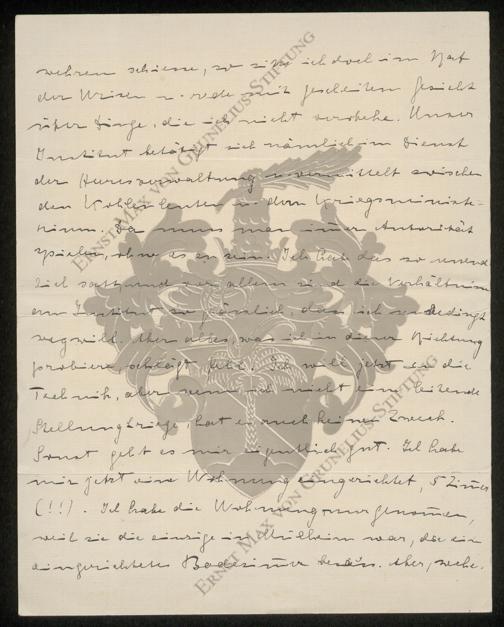 wehren schiesse, so sitze ich doch im Rat
der Weisen u. rede mit gescheiten Gesicht
über Dinge, die ich nicht verstehe. Unser
Institut betätigt sich nämlich im Dienst
der Heeresverwaltung u. vermittelt zwischen
den Kohlenleuten u. dem Kriegsministe-
rium. Da muss man immer Autorität
spielen, ohne es zu sein. Ich habe das so unend
lich satt und vor allem sind die Verhältnisse
am Institut so grässlich, dass ich unbedingt
weg will. Aber alles, was ich in dieser Richtung
probiere, schlägt fehl. Ich will jetzt in die
Technik, aber wenn ich nicht eine leitende
Stellung kriege, hat es auch keinen Zweck.
Sonst geht es mir eigentlich gut. Ich habe
mir jetzt eine Wohnung eingerichtet, 5 Zimmer
(!!). Ich habe die Wohnung nur genommen,
weil sie die einzige in Mülheim war, die ein
eingerichtetes Badezimmer besass. Aber, wehe.
ERNST MAX VON GRUNELIUS-STIFTUNG
ERNST MAX VON GRUNELIUS-STIFTUNG